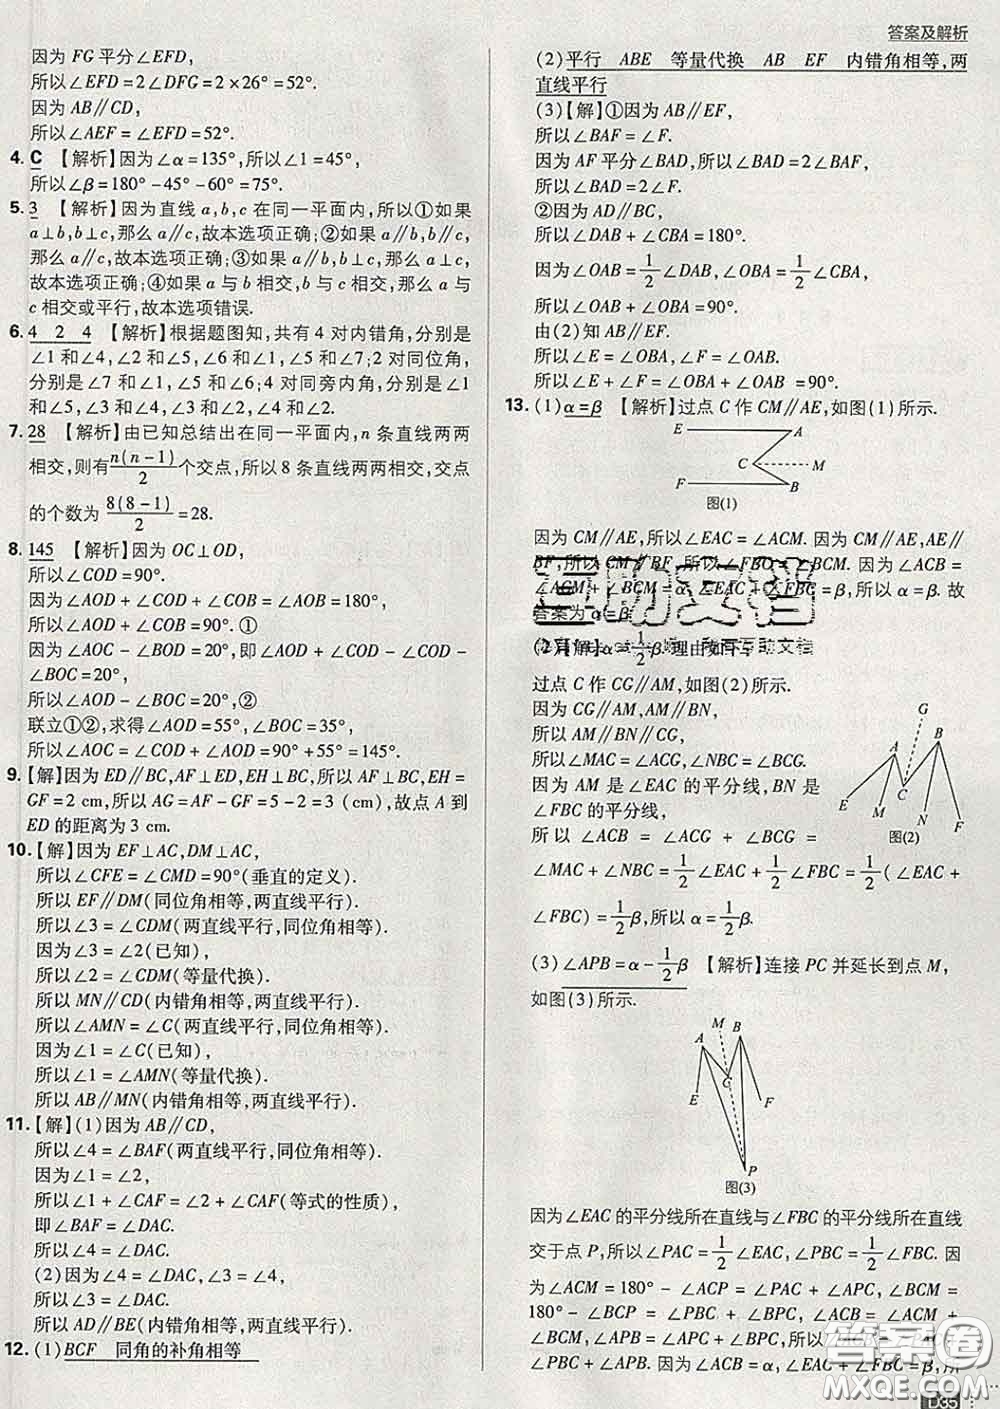 答案及解析
因为 FG 平分∠EFD,
所以∠EFD=2∠DFG=2×26°=52°.
因为 AB∥CD,
所以∠AEF=∠EFD=52°.
4. C 【解析】因为∠α=135°,所以∠1=45°,
所以∠β=180°-45°-60°=75°.
5. 3 【解析】因为直线 a,b,c 在同一平面内,所以①如果
a⊥b,b⊥c,那么 a∥c,故本选项正确;②如果 a∥b,b∥c,
那么 a∥c,故本选项正确;③如果 a∥b,b⊥c,那么 a⊥c,
故本选项正确;④如果 a 与 b 相交,b 与 c 相交,那么 a 与
c 相交或平行,故本选项错误.
6. 4 2 4 【解析】根据题图知,共有 4 对内错角,分别是
∠1 和∠4,∠2 和∠5,∠6 和∠2,∠5 和∠7;2 对同位角,
分别是∠7 和∠1,∠5 和∠6;4 对同旁内角,分别是∠1
和∠5,∠3 和∠4,∠3 和∠2,∠4 和∠2.
7. 28 【解析】由已知总结出在同一平面内,n 条直线两两
相交,则有n(n-1)/2个交点,所以 8 条直线两两相交,交点
的个数为 8(8-1)/2=28.
8. 145 【解析】因为 OC⊥OD,
所以∠COD=90°.
因为∠AOD+∠COD+∠COB=∠AOB=180°,
所以∠AOD+∠BOC=90°.①
因为∠AOC-∠BOC=20°,即∠AOD+∠COD-∠COD-
∠BOC=20°,
所以∠AOD-∠BOC=20°,②
联立①②,求得∠AOD=55°,∠BOC=35°,
所以∠AOC=∠COD+∠AOD=90°+55°=145°.
9. 【解】因为 ED∥BC,AF⊥ED,EH⊥BC,所以 AF⊥BC,EH=
GF=2 cm,所以 AG=AF-GF=5-2=3(cm),故点 A 到
ED 的距离为 3 cm.
10. 【解】因为 EF⊥AC,DM⊥AC,
所以∠CFE=∠CMD=90°(垂直的定义).
所以 EF∥DM(同位角相等,两直线平行).
所以∠3=∠CDM(两直线平行,同位角相等).
因为∠3=∠2(已知),
所以∠2=∠CDM(等量代换).
所以 MN∥CD(内错角相等,两直线平行).
所以∠AMN=∠C(两直线平行,同位角相等).
因为∠1=∠C(已知),
所以∠1=∠AMN(等量代换).
所以 AB∥MN(内错角相等,两直线平行).
11. 【解】(1)因为 AB∥CD,
所以∠4=∠BAF(两直线平行,同位角相等).
因为∠1=∠2,
所以∠1+∠CAF=∠2+∠CAF(等式的性质),
即∠BAF=∠DAC.
所以∠4=∠DAC.
(2)因为∠4=∠DAC,∠3=∠4,
所以∠3=∠DAC.
所以 AD∥BE(内错角相等,两直线平行).
12. (1)BCF 同角的补角相等
(2)平行 ABE 等量代换 AB EF 内错角相等,两
直线平行
(3)【解】①因为 AB∥EF,
所以∠BAF=∠F.
因为 AF 平分∠BAD,所以∠BAD=2∠BAF,
所以∠BAD=2∠F.
②因为 AD∥BC,
所以∠DAB+∠CBA=180°.
因为∠OAB=1/2∠DAB,∠OBA=1/2∠CBA,
所以∠OAB+∠OBA=90°.
由(2)知 AB∥EF,
所以∠E=∠OBA,∠F=∠OAB.
所以∠E+∠F=∠OBA+∠OAB=90°.
13. (1)α=β 【解析】过点 C 作 CM∥AE,如图(1)所示.
E A
C M
F B
图(1)
因为 CM∥AE,所以∠EAC=∠ACM.因为 CM∥AE,AE∥
BF,所以 CM∥BF,所以∠FBC=∠BCM.因为∠ACB=
∠ACM+∠BCM=α,∠EAC+∠FBC=β,所以α=β.故
答案为α=β.
(2)【解】α=1/2β.理由如下:
过点 C 作 CG∥AM,如图(2)所示.
因为 CG∥AM,AM∥BN,
所以 AM∥BN∥CG,
所以∠MAC=∠ACG,∠NBC=∠BCG.
因为 AM 是∠EAC 的平分线,BN 是
∠FBC 的平分线,
G
A B
E M C N F
图(2)
所以∠ACB=∠ACG+∠BCG=
∠MAC+∠NBC=1/2∠EAC+1/2∠FBC=1/2(∠EAC+
∠FBC)=1/2β,所以α=1/2β.
(3)∠APB=α-1/2β 【解析】连接 PC 并延长到点 M,
如图(3)所示.
M B
A
C
E F
P
图(3)
因为∠EAC 的平分线所在直线与∠FBC 的平分线所在直线
交于点 P,所以∠PAC=1/2∠EAC,∠PBC=1/2∠FBC.因
为∠ACM=180°-∠ACP=∠PAC+∠APC,∠BCM=
180°-∠BCP=∠PBC+∠BPC,所以∠ACB=∠ACM+
∠BCM,∠APB=∠APC+∠BPC,所以∠ACB=∠PAC+
∠APB+∠PBC.因为∠ACB=α,∠EAC+∠FBC=β,所
答案圈
MXQE.COM
D35